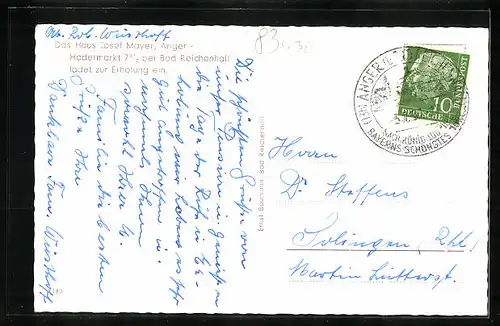 Abs. Rob. Wüsthoff
Das Haus Josef Mayer, Anger -
Hadermarkt 7¹/₂ bei Bad Reichenhall
ladet zur Erholung ein.
Die schönsten Grüße von
unserer Pension in
die Tage der Ruhe u. Er-
holung wir haben es sehr
gut angetroffen u.
wünschen Ihnen
sowohl Ihrer lb.
Familie die besten
Grüße Ihre
Dankbare Fam. Wüsthoff
Ernst Baumann, Bad Reichenhall
ANGER
NACH KÖNIG LUDWIG
BAYERNS SCHÖNSTES
10
DEUTSCHE
BUNDESPOST
Herrn
Dr Steffens
Solingen, Rhl.
Martin Lutherst.